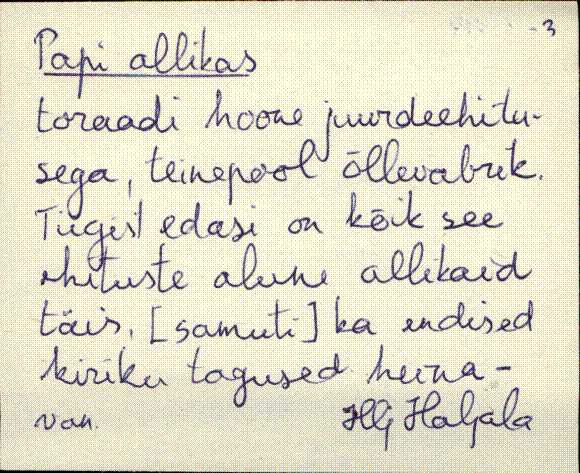 - 3
Papi allikas
toraadi hoone juurdeehitu-
sega, teinepool õllevabrik.
Tiigist edasi on kõik see
ehituste alune allikaid
täis, [samuti] ka endised
kiriku tagused heina-
van. Hlj Haljala